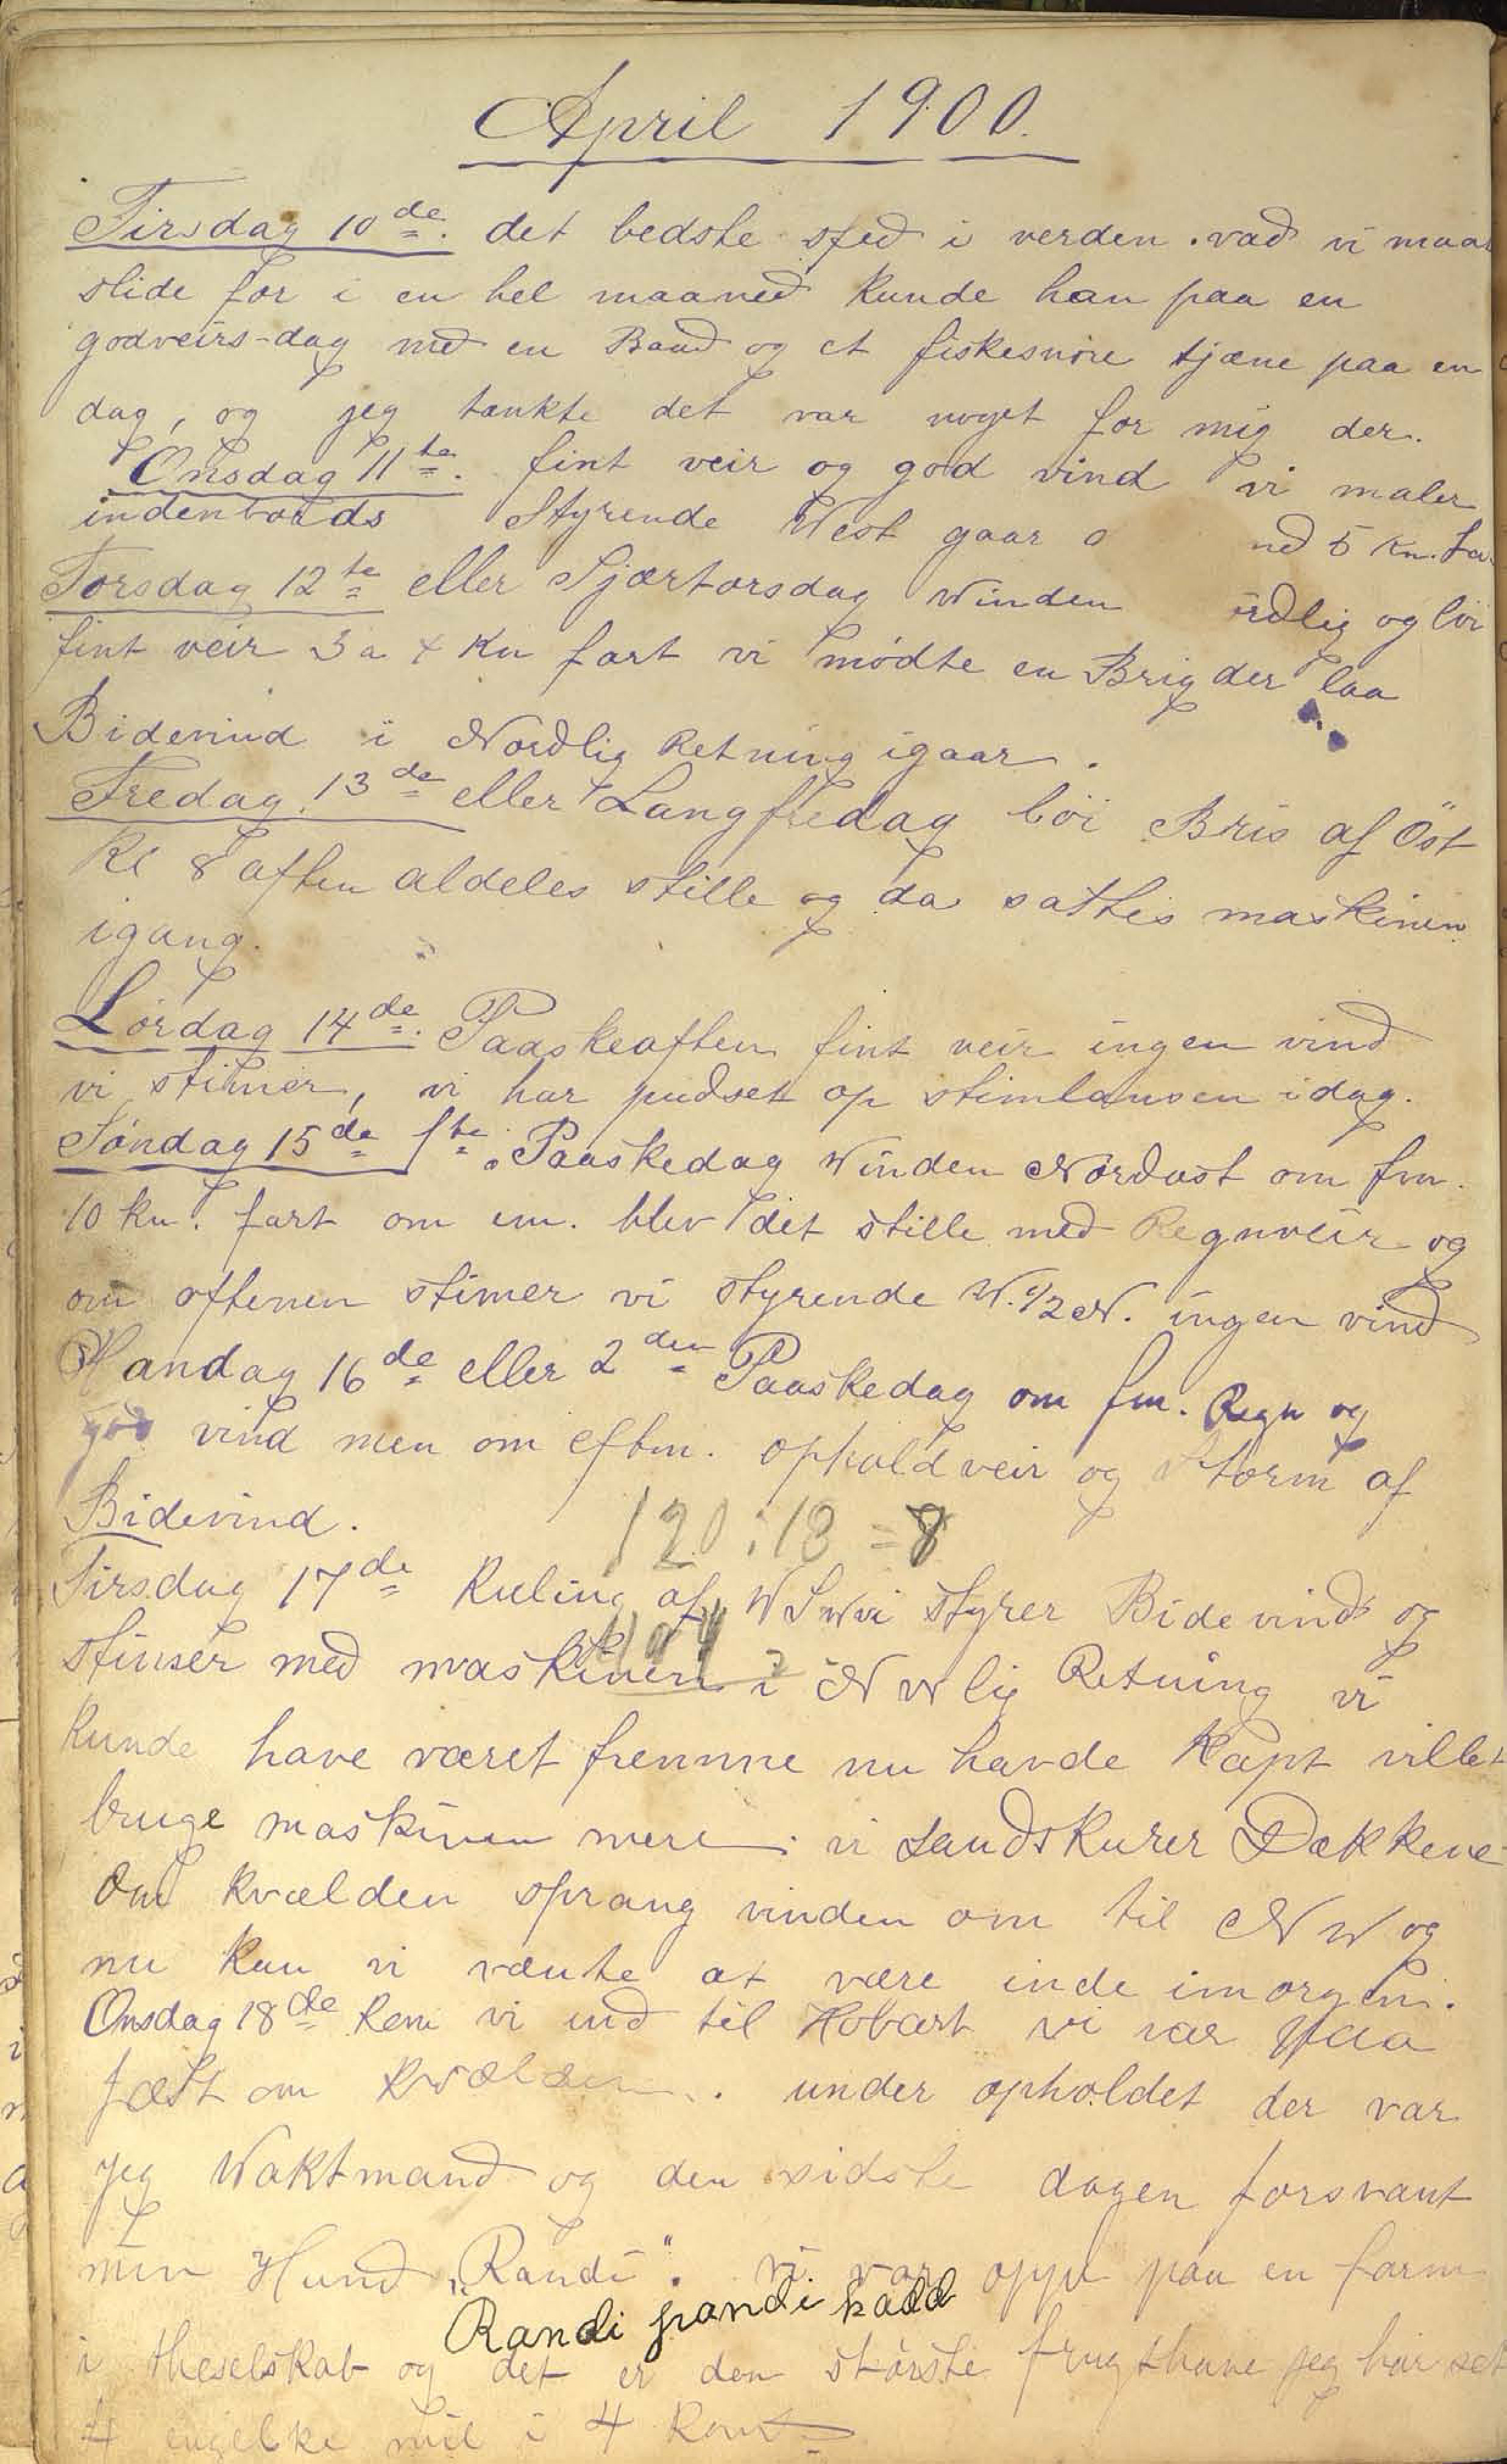 April 1900.
Tirsdag 10de. det bedste sted i verden. vad vi maa
slide for i en hel maaned kunde han paa en
godveirs-dag med en Baad og et fiskesnøre tjæne paa en
dag, og jeg tænkte det var noget for mig der.
Onsdag 11te. fint veir og god vind vi maler
indenbords Styrende West gaar o ned 5 Kn.
Torsdag 12te eller Skjærtorsdag Winden ørdlig og løi
fint veir 3 a 4 Kn fart vi mødte en Brig der laa
Bidevind i Nordlig Retning igaar.
Fredag 13de eller Langfredag løi Bris af Öst
Kl 8 aften aldeles stille og da sattes maskinen
igang.
Lørdag 14de. Paaskeaften fint veir ingen vind
vi stimer, vi har pudset op stimlansen idag.
Søndag 15de 1ste. Paaskedag Winden Nordost om fm.
10 kn. fart om em. blev det stille med Regnveir og
om aftenen stimer vi styrende W. 1/2 N. ingen vind
Mandag 16de eller 2den Paaskedag om fm. Regn og
god vind men om eftm. opholdveir og Storm af
Bidevind.
120:13 = 8
Tirsdag 17de Kuling af WSW vi styrer Bidevind og
stimer med maskinen i NWlig Retning vi
104
kunde have været fremme nu havde Kapt villet
bruge maskinen mere. vi sandskurer Dækkene
Om kvælden sprang vinden om til NW og
nu kan vi vænte at være inde imorgen.
Onsdag 18de kom vi ind til Hobart vi var paa
fæst om kvælden. under opholdet der var
jeg Waktmand og den sidste dagen forsvant
min Hund „Randi". vi var oppe paa en farm
Randi pandi kald
i theselskab og det er den største frugthave jeg har set
4 engelske mil i 4 Kant